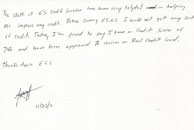 The staff at ECS Credit Services have been very helpful in helping
me improve my credit. Before coming ECS, I could not get any kind
of credit. Today, I am proud to say I have a Credit Score of
706 and have been approved to receive a Real Credit Card.
Thanks Again ECS